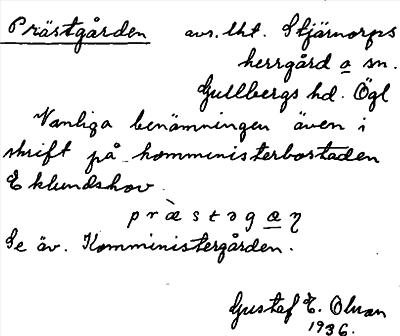 Prästgården avs. lht. Stjärnorps
herrgård a sn.
Gullbergs hd. Ögl
Vanliga benämningen även i
skrift på komministerbostaden
Eklundshov.
prὰstɘgan
Se äv. Komministergården.
Gustaf E. Olsson
1936.